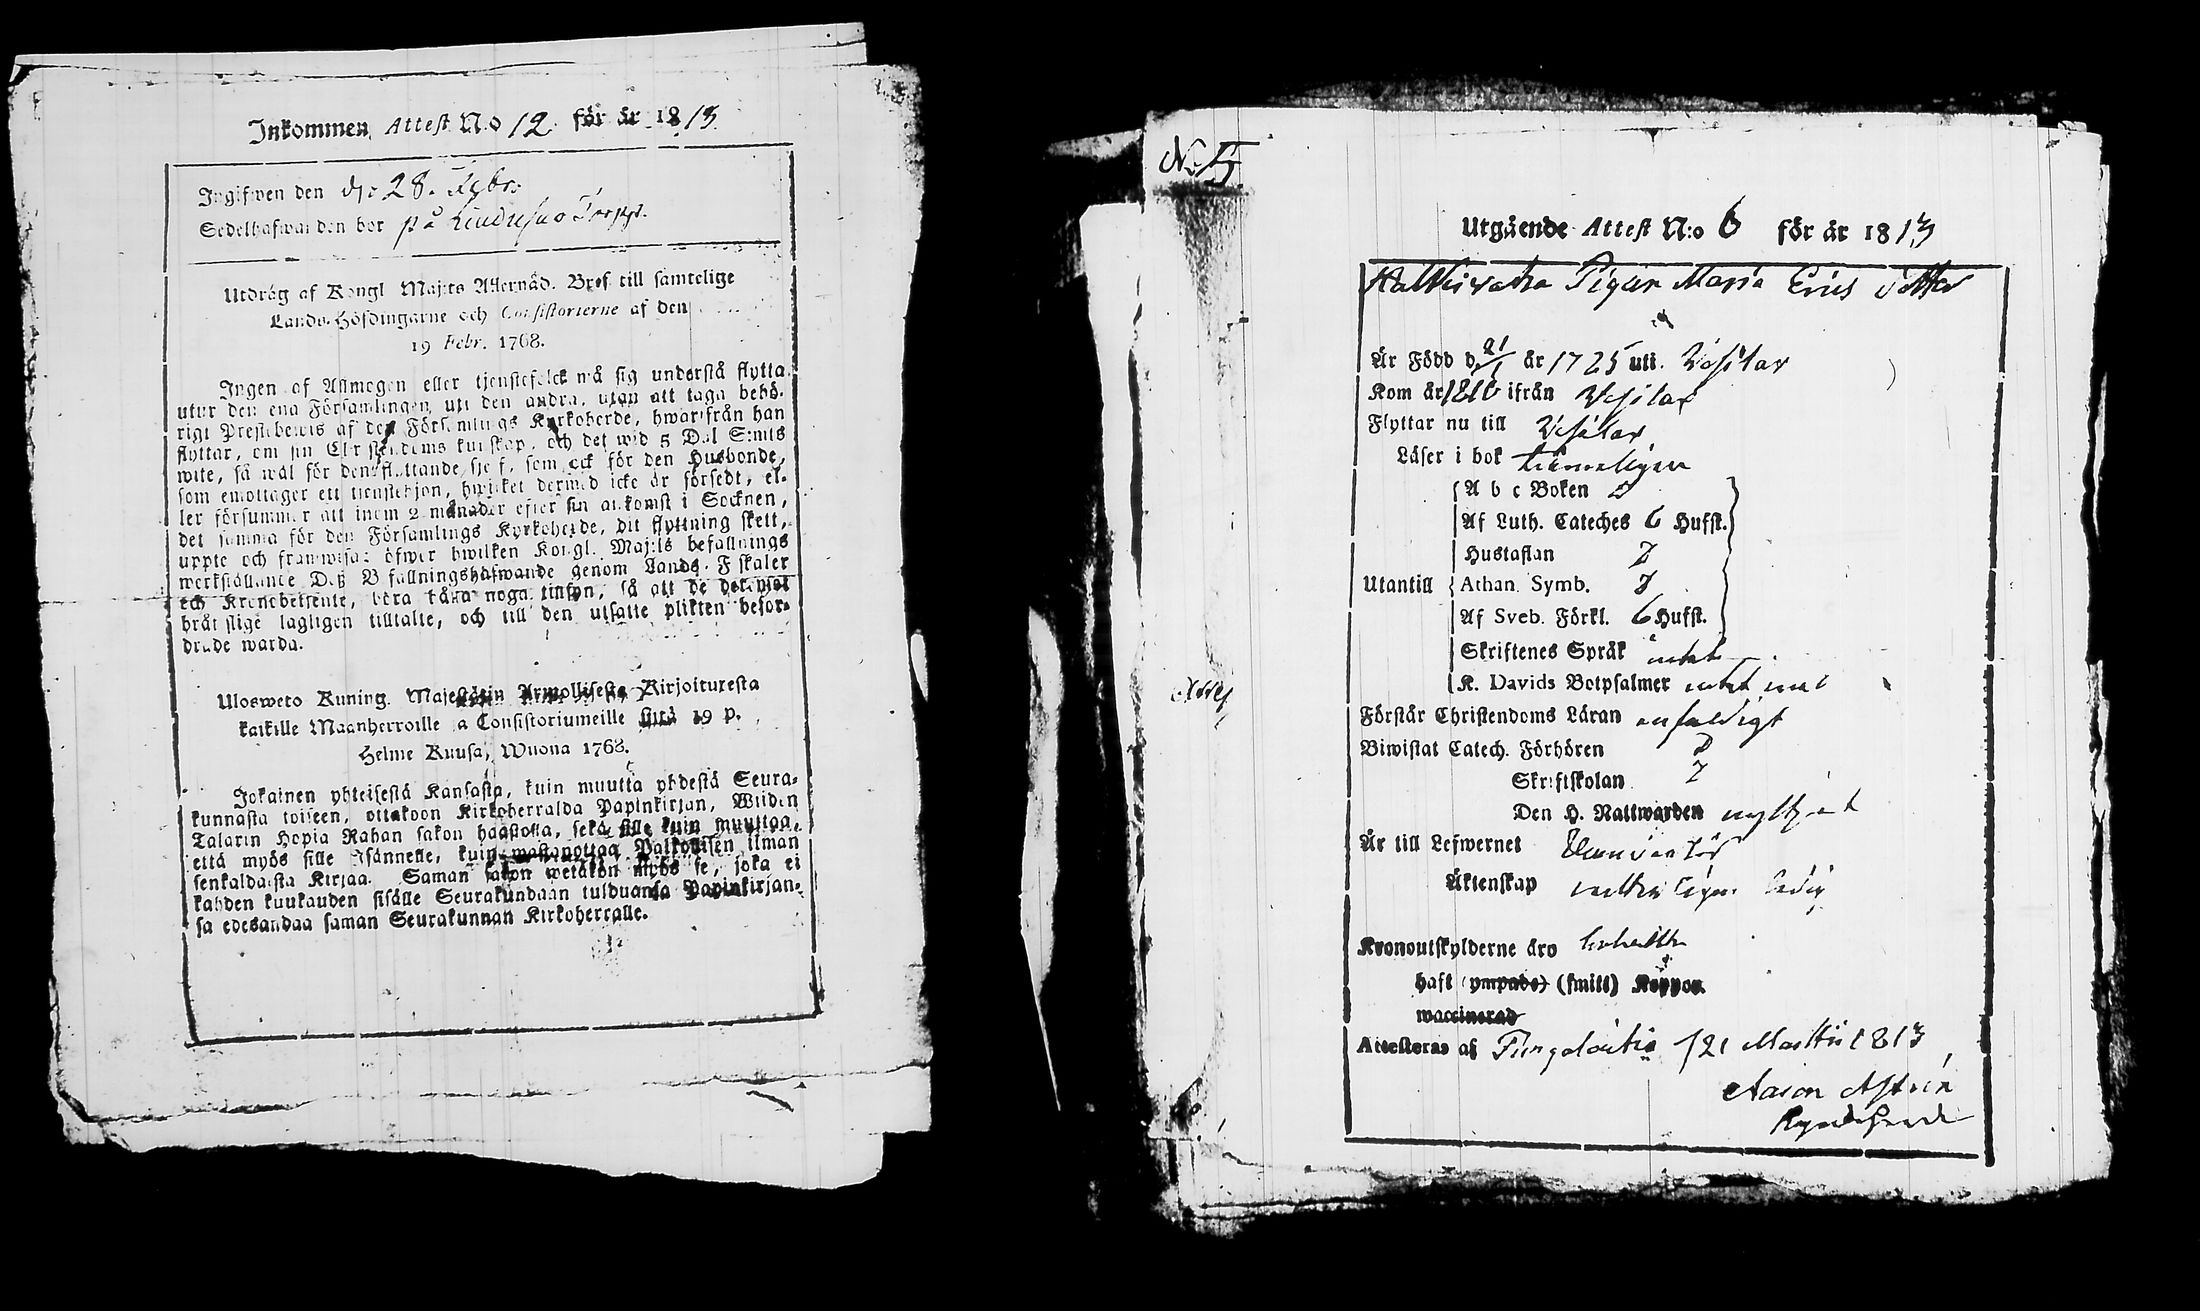 Inkommen Attest N:o 12 för år 1813
Ingifwen den d: 28.
Sedelhafwanden bor på
Utdrag af Kongl Maj:ts Allernåd. Bref till samtelige
Lands-Höfdingarne och Consistorierne af den
19 Febr. 1768.
Ingen af Allmogen eller tjenstefolck må sig understå flytta
utur den ena Församlingen uti den andra, utan att taga behö-
rigt Prestebewis af den Församlings Kyrkoherde, hwarifrån han
flyttar, om sin Christendoms kunskap, och det wid 5 Dal S:mts
wite, så wäl för den flyttande sjelf, som ock för den Husbonde,
som emottager ett tienstehjon, hwilket dermed icke är försedt, el-
ler försummar att inom 2 månader efter sin ankomst i Socknen,
det samma för den Församlings Kyrkoherde, dit flyttning skett,
uppte och framwisa: öfwer hwilken Kongl. Maj:ts befallnings
werkställande Deß Befallningshafwande genom Lands-Fiskaler
och Kronobetjente, böra hålla noga tinsyn, så att de
lagligen tilltalte, och till den utsatte plikten befor-
drade warda.
Ulosweto Kuning. Majestätin Armollisesta Kirjoituresta
kaikille Maanherroille ja Consistoriumeille siitä 19 p.
Helme Kuusa, Wuona 1768.
Jokainen yhteisestä Kansasta, kuin muutta yhdestä Seura-
kunnasta toiseen, ottakoon Kirkoherralda Papinkirjan, Wiiden
Talarin Hopia Rahan sakon haastolla, sekä sille kuin muuttaa,
että myös sille Isännelle, kuin wastanottaa Palkollisen ilman
senkaldaista Kirjaa. Saman sakon wetäkön myös se, joka ei
kahden kuukauden sisälle Seurakundaan tulduansa Papinkirjan-
sa edesandaa saman Seurakunnan Kirkoherralle.
N:5
Utgående Attest N:o 6 för år 1813
Pigan Maria Erics dotter
Är Född d. 21/1 år 1725 uti. Vesilax
Kom år 1810 ifrån Vesilax
Flyttar nu till Vesilax
Läser i bok
A b c Boken
Af Luth. Cateches 6 Hufst.
Hustaflan
Utantill Athan. Symb.
Af Sveb. Förkl. 6 Hufst.
Skriftenes Språk intet
K. Davids Botpsalmer intet
Förstår Christendoms Läran enfaldigt
Biwistat Catech. Förhören
Skriftskolan
Den H. Nattwarden nyttjat
Är till Lefwernet
Äktenskap ledig
Kronoutskylderne äro
haft (ympade) (smitt) Koppor.
waccinerad
Attesteras af 21 Martii 1813